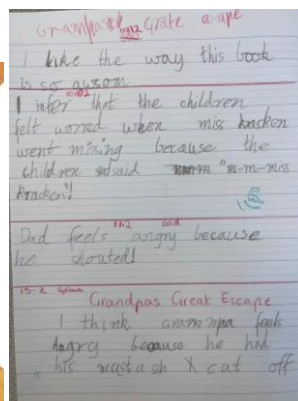 Grampas Grate a ape
I like the way this book
is so ausom
I infer that the children
felt worred when miss kracken
went mising because the
children said "m-m-miss
kracken"!
Dad feels angry because
he shouted!
Grandpas Great Escape
I think grammpa feels
Angry because he had
his mastash X cut off